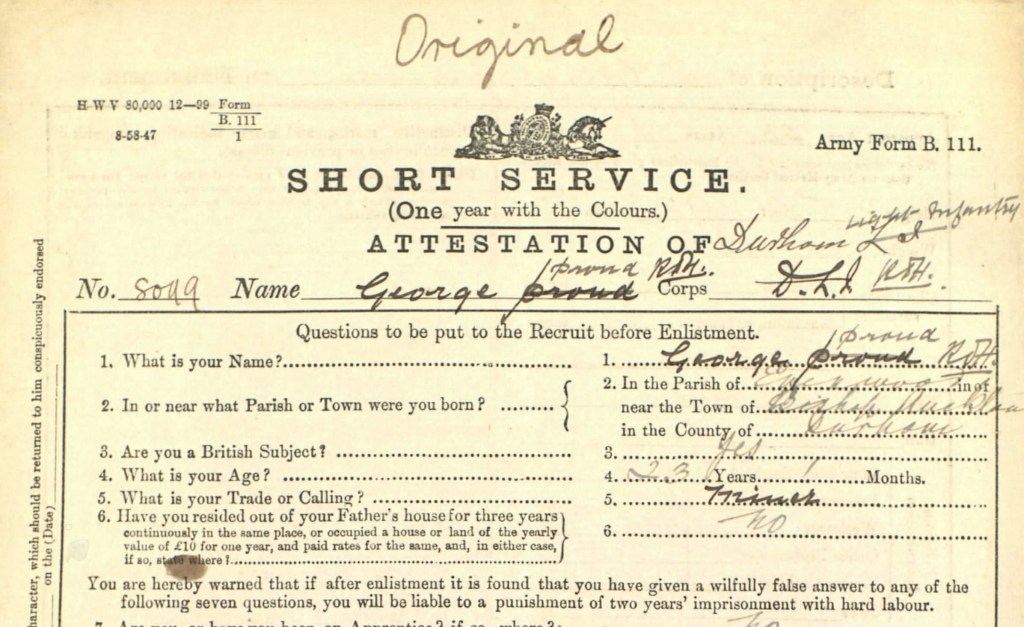 Original
H W V 80,000 12—99 Form B. 111 1
8-58-47
Army Form B. 111.
SHORT SERVICE.
(One year with the Colours.)
Light Infantry
ATTESTATION OF Durham
proud
No. 8099 Name George proud Corps D.L.I
Questions to be put to the Recruit before Enlistment.
proud
1. What is your Name? 1. George proud
2. In or near what Parish or Town were you born? 2. In the Parish of in or
near the Town of Bishop Auckland
in the County of Durham
3. Are you a British Subject? 3. Yes
4. What is your Age? 4. 23 Years / Months.
5. What is your Trade or Calling? 5. Miner
6. Have you resided out of your Father's house for three years
continuously in the same place, or occupied a house or land of the yearly
value of £10 for one year, and paid rates for the same, and, in either case,
if so, state where? 6. No
You are hereby warned that if after enlistment it is found that you have given a wilfully false answer to any of the
following seven questions, you will be liable to a punishment of two years' imprisonment with hard labour.
7. Are you, or have you been an Apprentice? if so, where? No
haracter, which should be returned to him conspicuously endorsed
on the (Date)